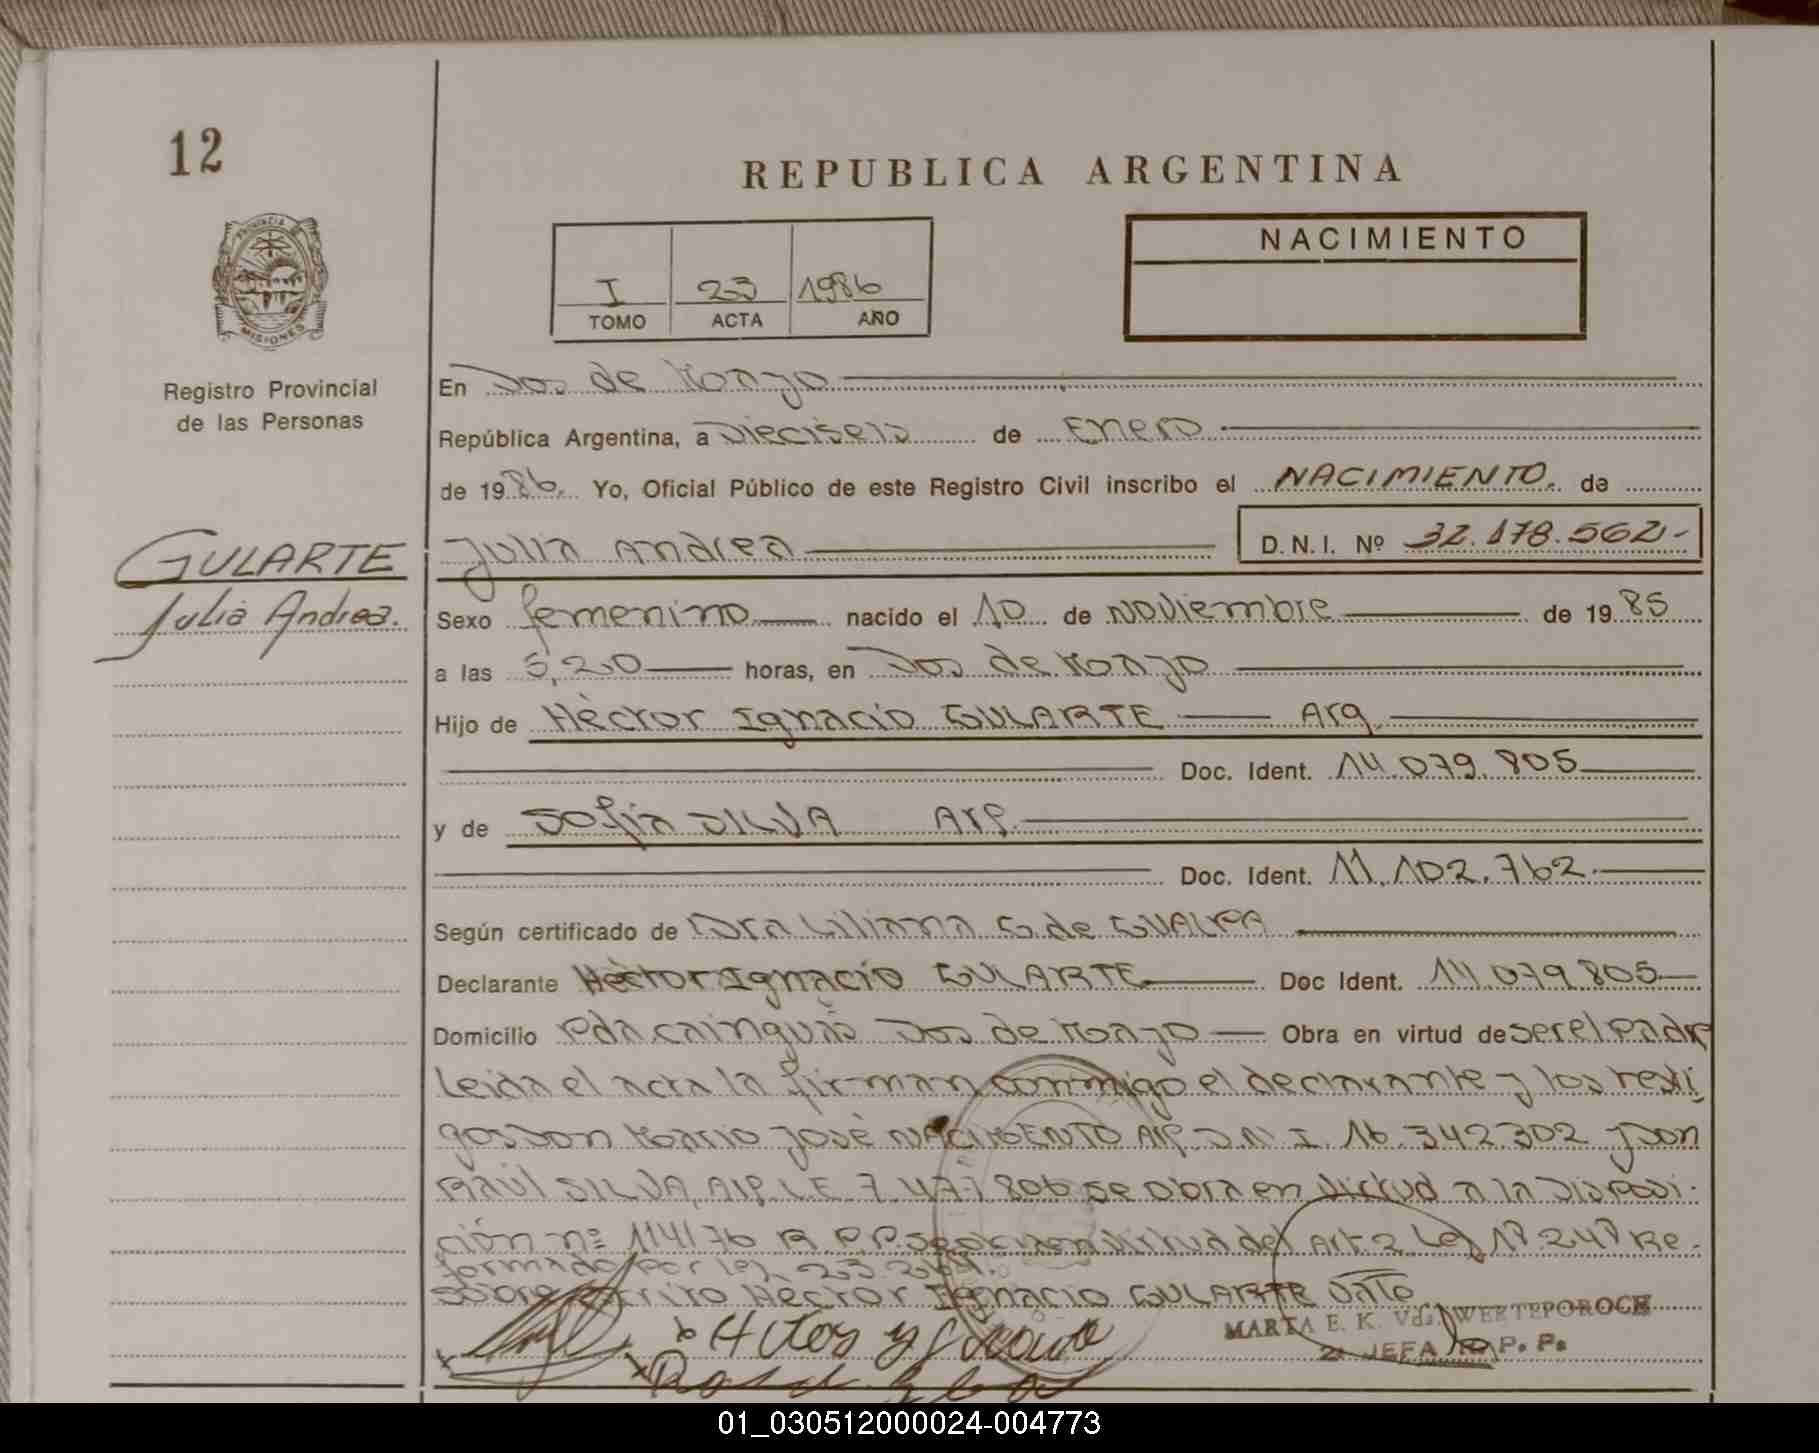 12
REPUBLICA ARGENTINA
PROVINCIA DE
MISIONES
Registro Provincial
de las Personas
I 23 1986
TOMO ACTA AÑO
NACIMIENTO
En Dos de Mayo
República Argentina, a Dieciseis de Enero
de 1986. Yo, Oficial Público de este Registro Civil inscribo el NACIMIENTO. de
GULARTE
Julia Andrea.
Julia Andrea D.N.I. Nº 32.178.562.-
Sexo femenino nacido el 10 de Noviembre de 1985
a las 5,20 horas, en Dos de Mayo
Hijo de Hèctor Ignacio GULARTE Arg.
Doc. Ident. 14.079.805
y de Sofía SILVA Arg.
Doc. Ident. 11.102.762
Según certificado de Dra Liliana G. de GUALPA
Declarante Hèctor Ignacio GULARTE Doc Ident. 14.079.805
Domicilio Pda. cainguás Dos de Mayo Obra en virtud de ser el Padre
Leida el acta la firman conmigo el declarante y los testi
gos Don Mario José NACIMENTO Arg. D.N.I. 16.342.302 y Don
Raúl SILVA, Arg. L.E. 7.477.806 se obra en virtud a la Disposi-
ción nº 114/76 R.P.P. se obra en virtud del Art 2 Ley 18.248 Re-
formado por Ley 23.264.
Sobre escrito Hèctor Ignacio GULARTE Vale
MARTA E. K. Vda. WEKTEPOROCH
JEFA R. P. P.
01_030512000024-004773